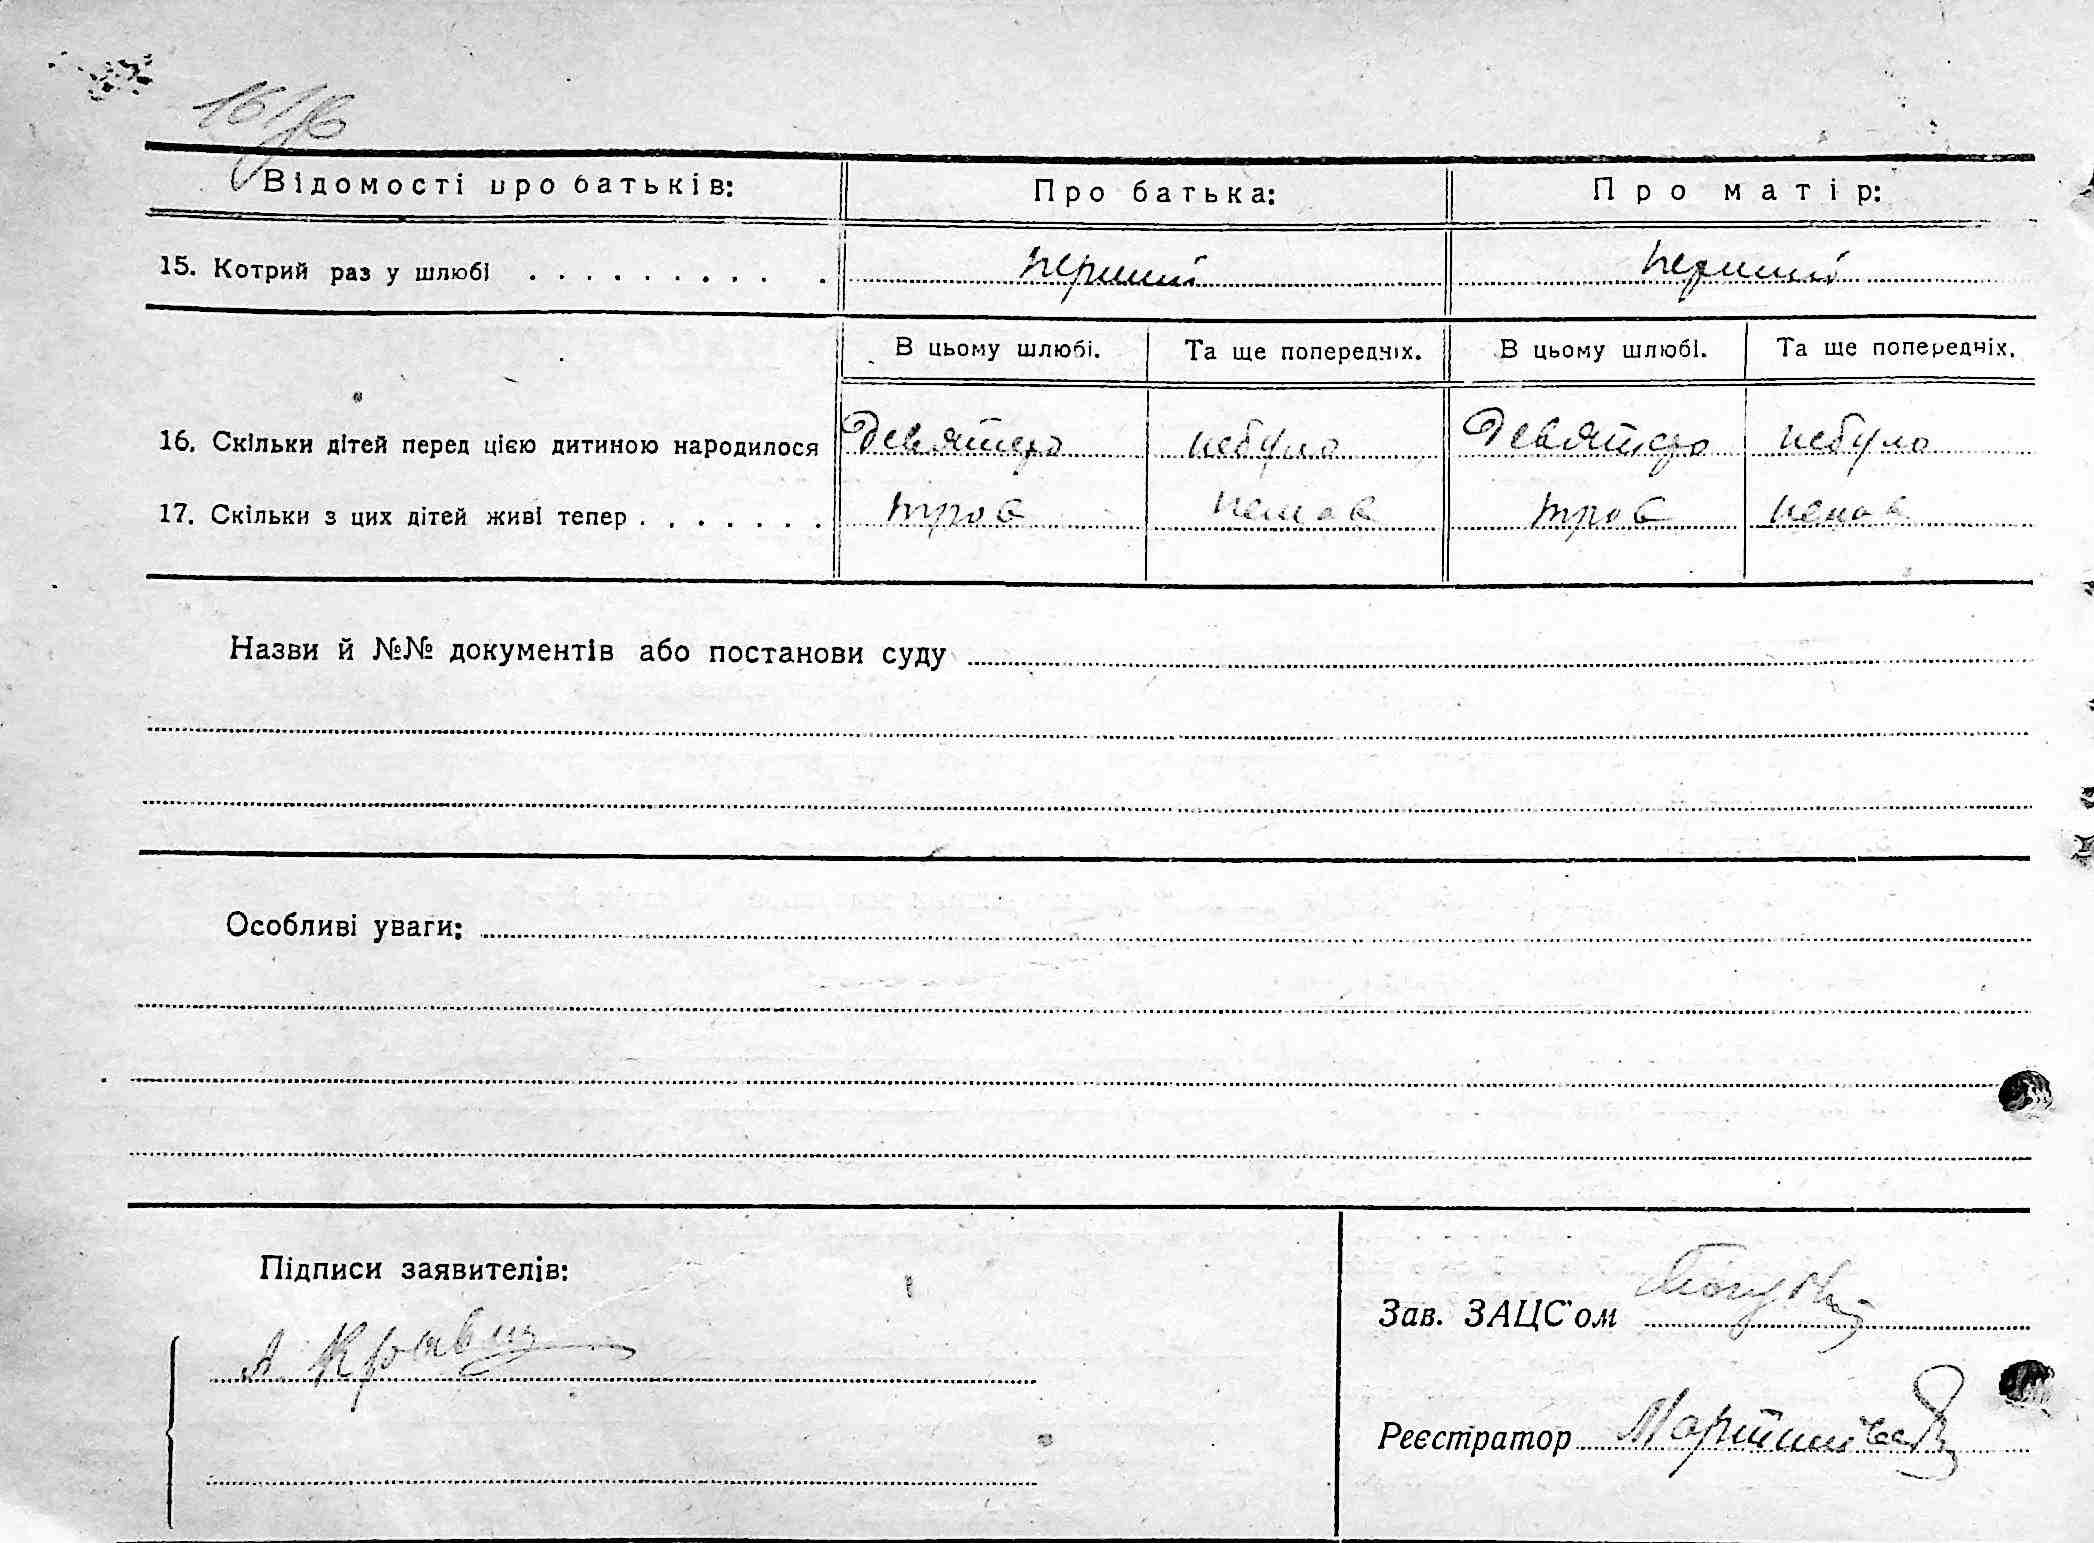 16/16
Відомості про батьків: Про батька: Про матір:
15. Котрий раз у шлюбі . . . . . . . . . . перший перший
В цьому шлюбі. Та ще попередніх. В цьому шлюбі. Та ще попередніх.
16. Скільки дітей перед цією дитиною народилося Девятеро небуло Девятеро небуло
17. Скільки з цих дітей живі тепер . . . . . . . троє немає троє немає
Назви й №№ документів або постанови суду
Особливі уваги:
Підписи заявителів:
Зав. ЗАЦС'ом
А. Кравец
Реєстратор